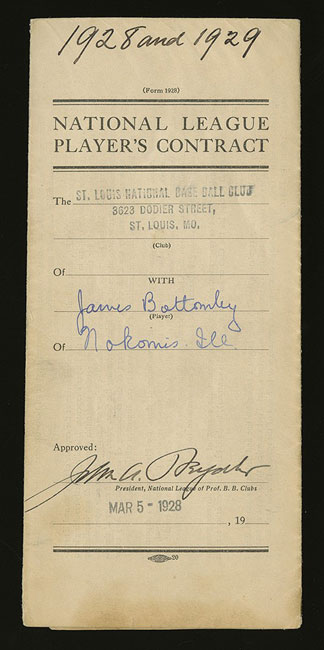 1928 and 1929
(Form 1928)
NATIONAL LEAGUE
PLAYER'S CONTRACT
The ST. LOUIS NATIONAL BASE BALL CLUB
3623 DODIER STREET,
ST. LOUIS, MO.
(Club)
Of
WITH
James Bottomley
(Player)
Of Nokomis. Ill.
Approved:
John A. Heydler
President, National League of Prof. B. B. Clubs
MAR 5 - 1928
, 19
20